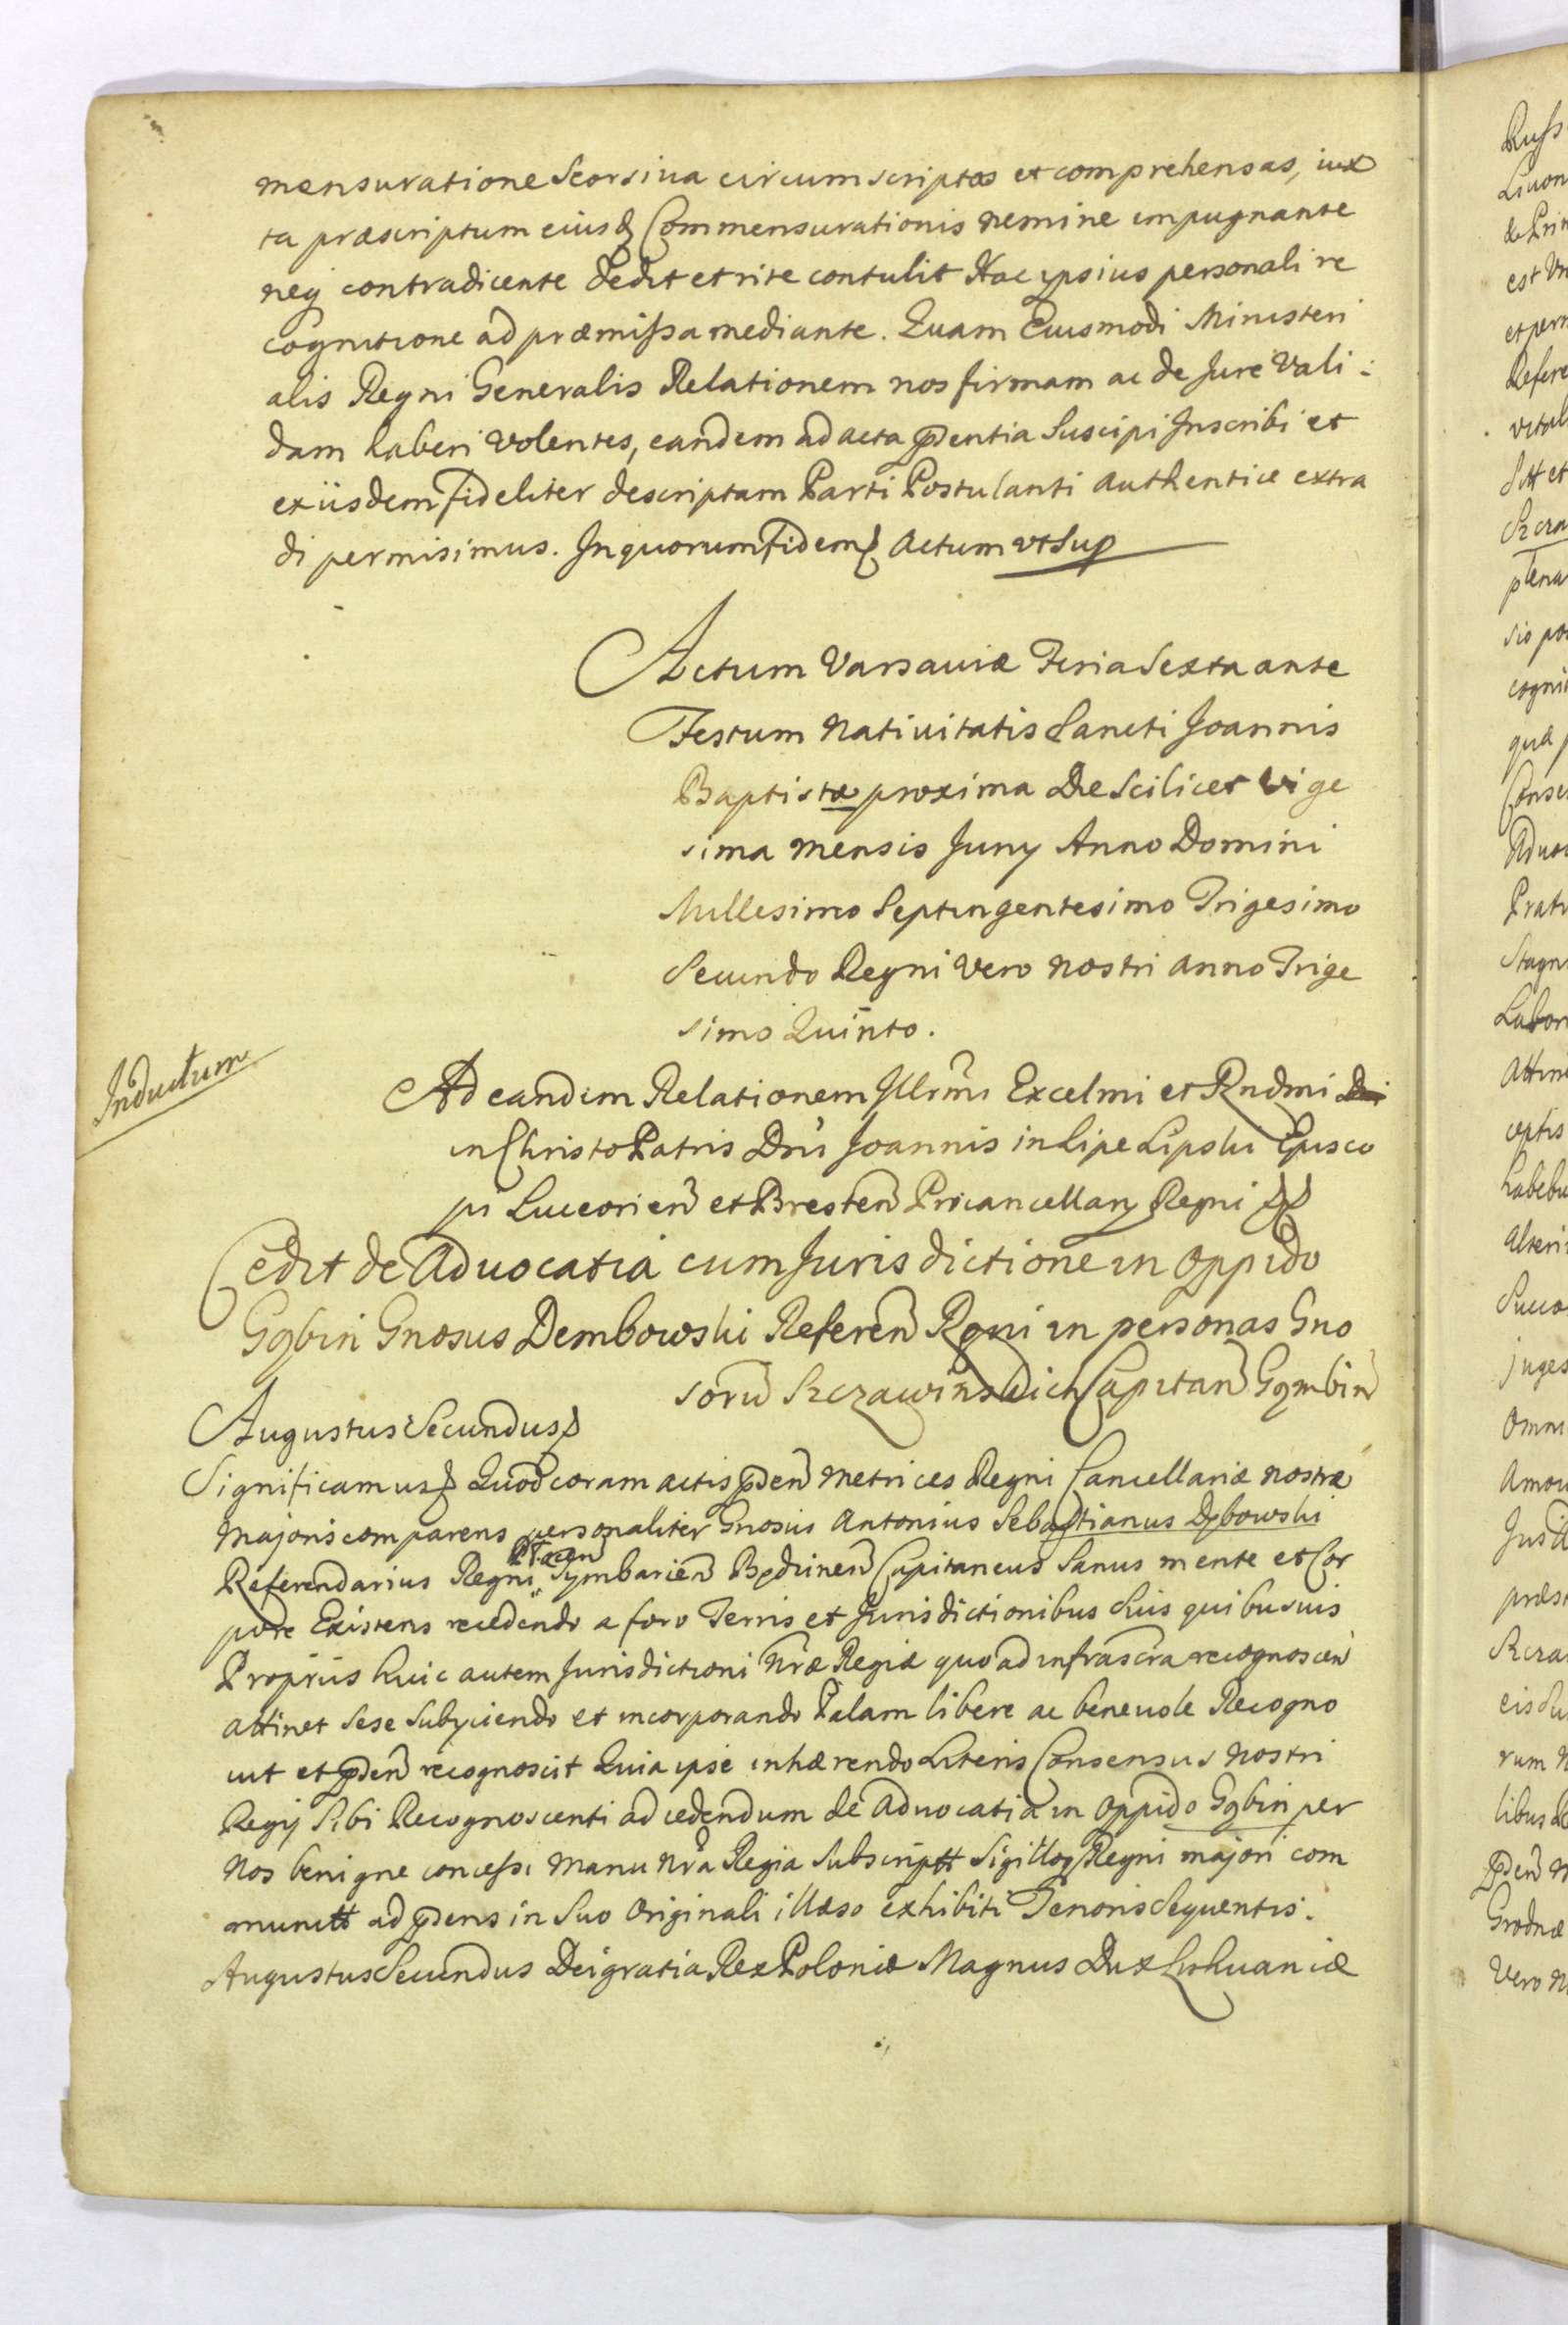 mensuratione Seorsiva circumscriptas et comprehensas, iux
ta præscriptum eiusq Commensurationis nemine impugnante
neq contradicente dedit et rite contulit Hac ipsius personali re
cognitione ad præmissa mediante. Quam Eiusmodi Ministeri
alis Regni Generalis Relationem nos firmam ac de Jure Vali:
dam haberi Volentes, eandem ad acta pdentia Suscipi Inscribi et
ex iisdem fideliter descriptam Parti Postulanti authentice extra
di permisimus. In quorum Fidem Actum vt Sup
Actum Varsaviæ Feria Sexta ante
Festum Nativitatis Sancti Joannis
Baptistæ proxima Die Scilicet Vige
sima mensis Juny Anno Domini
Millesimo Septingentesimo Trigesimo
Secundo Regni Vero Nostri Anno Trige
simo Quinto.
Inductum
Ad eandem Relationem Illrmi Excelmi et Rndmi
in Christo Patris Dni Joannis in Lipe Lipski Episco
pi Luceorien et Bresten Procancellary Regni
Cedit de Advocatia cum Jurisdictione in Oppido
Gąbin Gnosus Dembowski Referen Rgni in personas Gno
soru Szczawinskich Capitan Gąmbin
Augustus Secundus
Significamus Quod coram actis pden Metrices Regni Cancellariæ nostræ
Majoris comparens personaliter Gnosus Antonius Sebastianus Dębowski
Referendarius Regni Płocen Tymbarien Będzinen Capitaneus Sanus mente et Cor
pore Existens recedendo a foro Terris et Jurisdictionibus Suis quibusvis
Propriis huic autem Jurisdictioni Nræ Regiæ quo ad infrascra recognoscen
attinet sese Subyciendo et incorporando Palam libere ac benevole Recogno
vit et pden recognoscit Quia ipse inhærendo Literis Consensus Nostri
Regij Sibi Recognoscenti ad cedendum de Advocatia in Oppido Gąbin per
Nos benigne concessi Manu Nra Regia Subscriptt Sigilloq Regni majori com
munitt ad pdens in Suo Originali illæso exhibiti Tenoris Sequentis.
Augustus Secundus Dei gratia Rex Poloniæ Magnus Dux Lithuaniæ